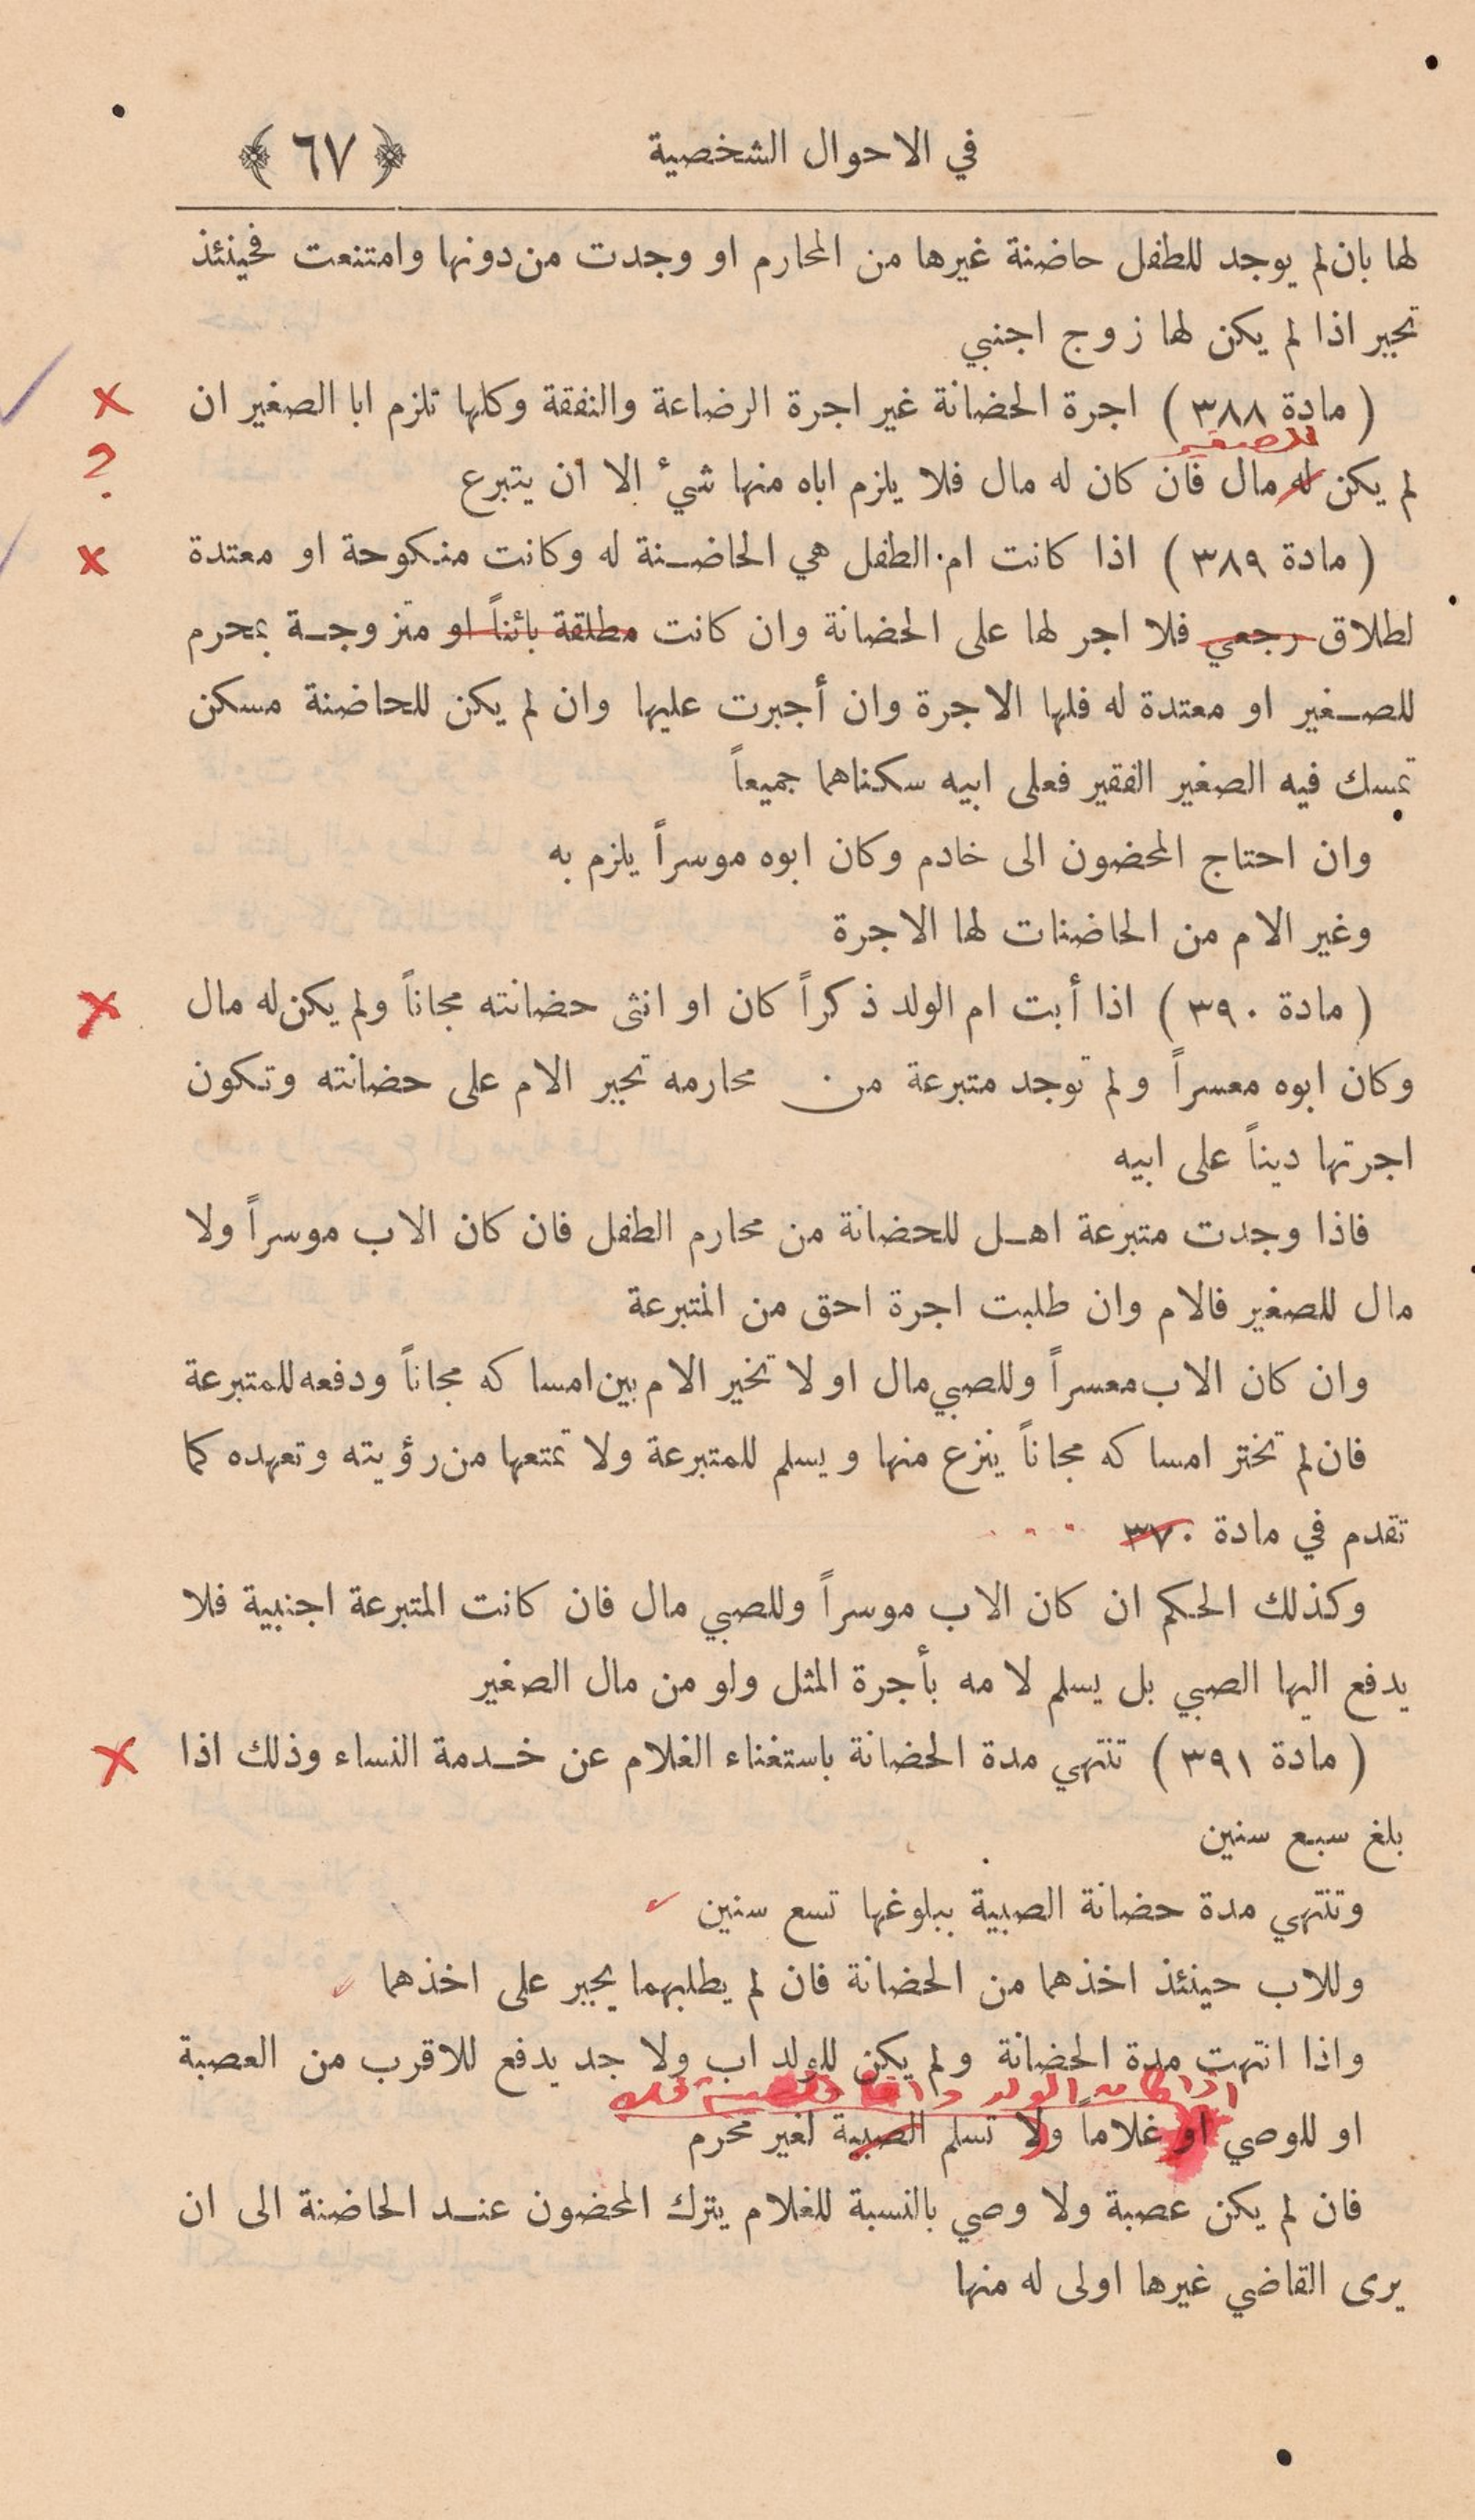 في الاحوال الشخصية ﴿ ٦٧ ﴾
لها بان لم يوجد للطفل حاضنة غيرها من المحارم او وجدت من دونها وامتنعت فحينئذ
تجبر اذا لم يكن لها زوج اجنبي
( مادة ٣٨٨ ) اجرة الحضانة غير اجرة الرضاعة والنفقة وكلها تلزم ابا الصغير ان
للصغير
لم يكن له مال فان كان له مال فلا يلزم اباه منها شيء الا ان يتبرع
?
( مادة ٣٨٩ ) اذا كانت ام الطفل هي الحاضنة له وكانت منكوحة او معتدة
لطلاق رجعي فلا اجر لها على الحضانة وان كانت مطلقة بائناً او متزوجة بمحرم
للصغير او معتدة له فلها الاجرة وان أجبرت عليها وان لم يكن للحاضنة مسكن
تمسك فيه الصغير الفقير فعلى ابيه سكناهما جميعاً
وان احتاج المحضون الى خادم وكان ابوه موسراً يلزم به
وغير الام من الحاضنات لها الاجرة
( مادة ٣٩٠ ) اذا أبت ام الولد ذكراً كان او انثى حضانته مجاناً ولم يكن له مال
وكان ابوه معسراً ولم توجد متبرعة من محارمه تجبر الام على حضانته وتكون
اجرتها ديناً على ابيه
فاذا وجدت متبرعة اهل للحضانة من محارم الطفل فان كان الاب موسراً ولا
مال للصغير فالام وان طلبت اجرة احق من المتبرعة
وان كان الاب معسراً وللصبي مال او لا تخير الام بين امساكه مجاناً ودفعه للمتبرعة
فان لم تختر امساكه مجاناً ينزع منها ويسلم للمتبرعة ولا تمتعها من رؤيته وتعهده كما
تقدم في مادة ٣٧٠
وكذلك الحكم ان كان الاب موسراً وللصبي مال فان كانت المتبرعة اجنبية فلا
يدفع اليها الصبي بل يسلم لامه بأجرة المثل ولو من مال الصغير
( مادة ٣٩١ ) تنتهي مدة الحضانة باستغناء الغلام عن خدمة النساء وذلك اذا
بلغ سبع سنين
وتنتهي مدة حضانة الصبية ببلوغها تسع سنين
وللاب حينئذ اخذهما من الحضانة فان لم يطلبهما يجبر على اخذهما
واذا انتهت مدة الحضانة ولم يكن للولد اب ولا جد يدفع للاقرب من العصبة
اذا كان الولد واما الصبية فلا
او للوصي او غلاماً ولا تسلم الصبية لغير محرم
فان لم يكن عصبة ولا وصي بالنسبة للغلام يترك المحضون عند الحاضنة الى ان
يرى القاضي غيرها اولى له منها